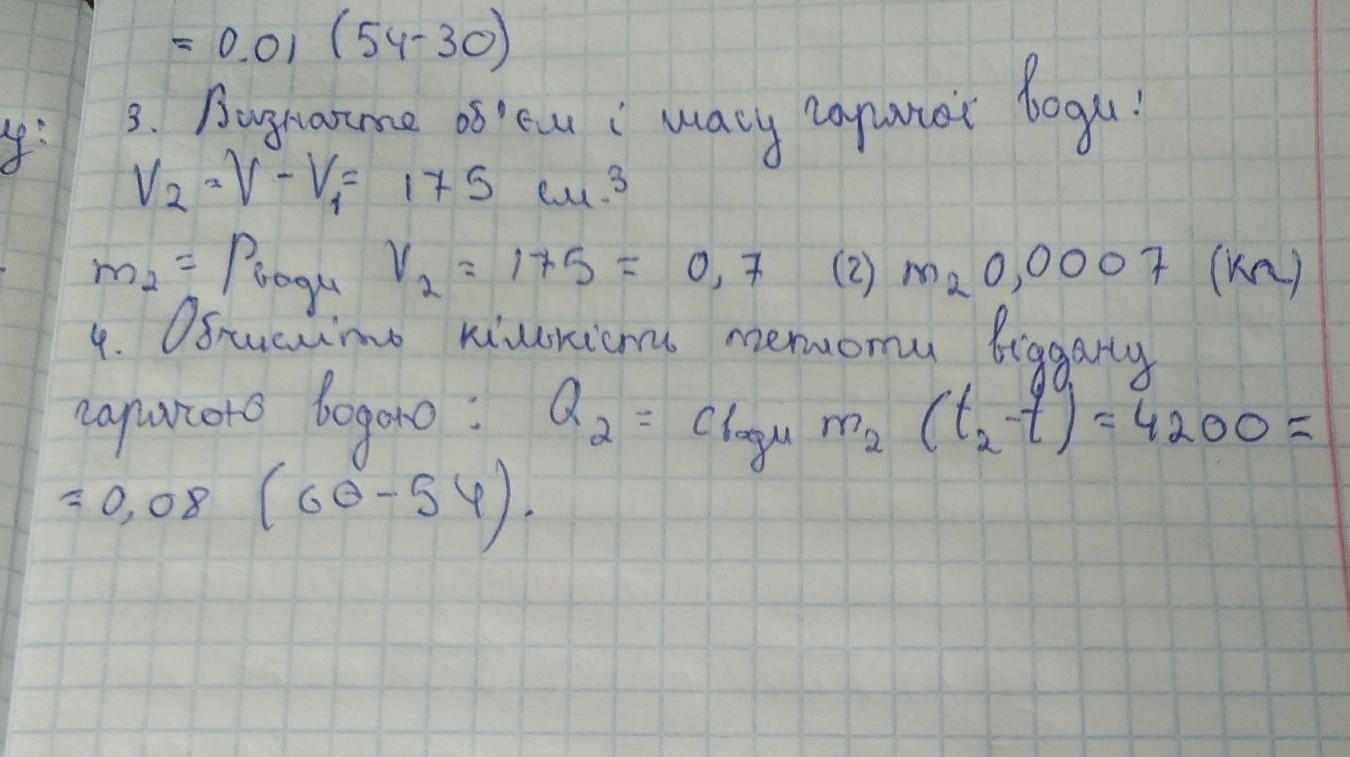 = 0.01 (54-30)
3. Визначте об'єм і масу гарячої води:
V₂ = V - V₁ = 175 см.³
m₂ = ρводи V₂ = 175 = 0,7 (г) m₂ 0,0007 (кг)
4. Обчисліть кількість теплоти віддану
гарячою водою : Q₂ = cводи m₂ (t₂-t) = 4200 =
= 0,08 (60-54).